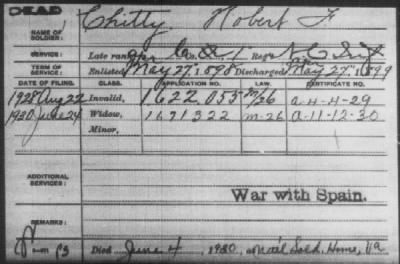 DEAD
NAME OF SOLDIER: Chitty Hobert F
SERVICE: Late rank, Co. Reg't N C Inf
TERM OF SERVICE: Enlisted May 27, 1898 Discharged May 27, 1899
DATE OF FILING. CLASS. APPLICATION NO. LAW. CERTIFICATE NO.
1928 Aug 22 Invalid, 1622 055 a-4-4-29
1930 June 24 Widow, 1671322 m-26 a-11-12-30
Minor,
ADDITIONAL SERVICES:
War with Spain.
REMARKS:
Died June 4, 1930, at Natl Sold. Home, Va